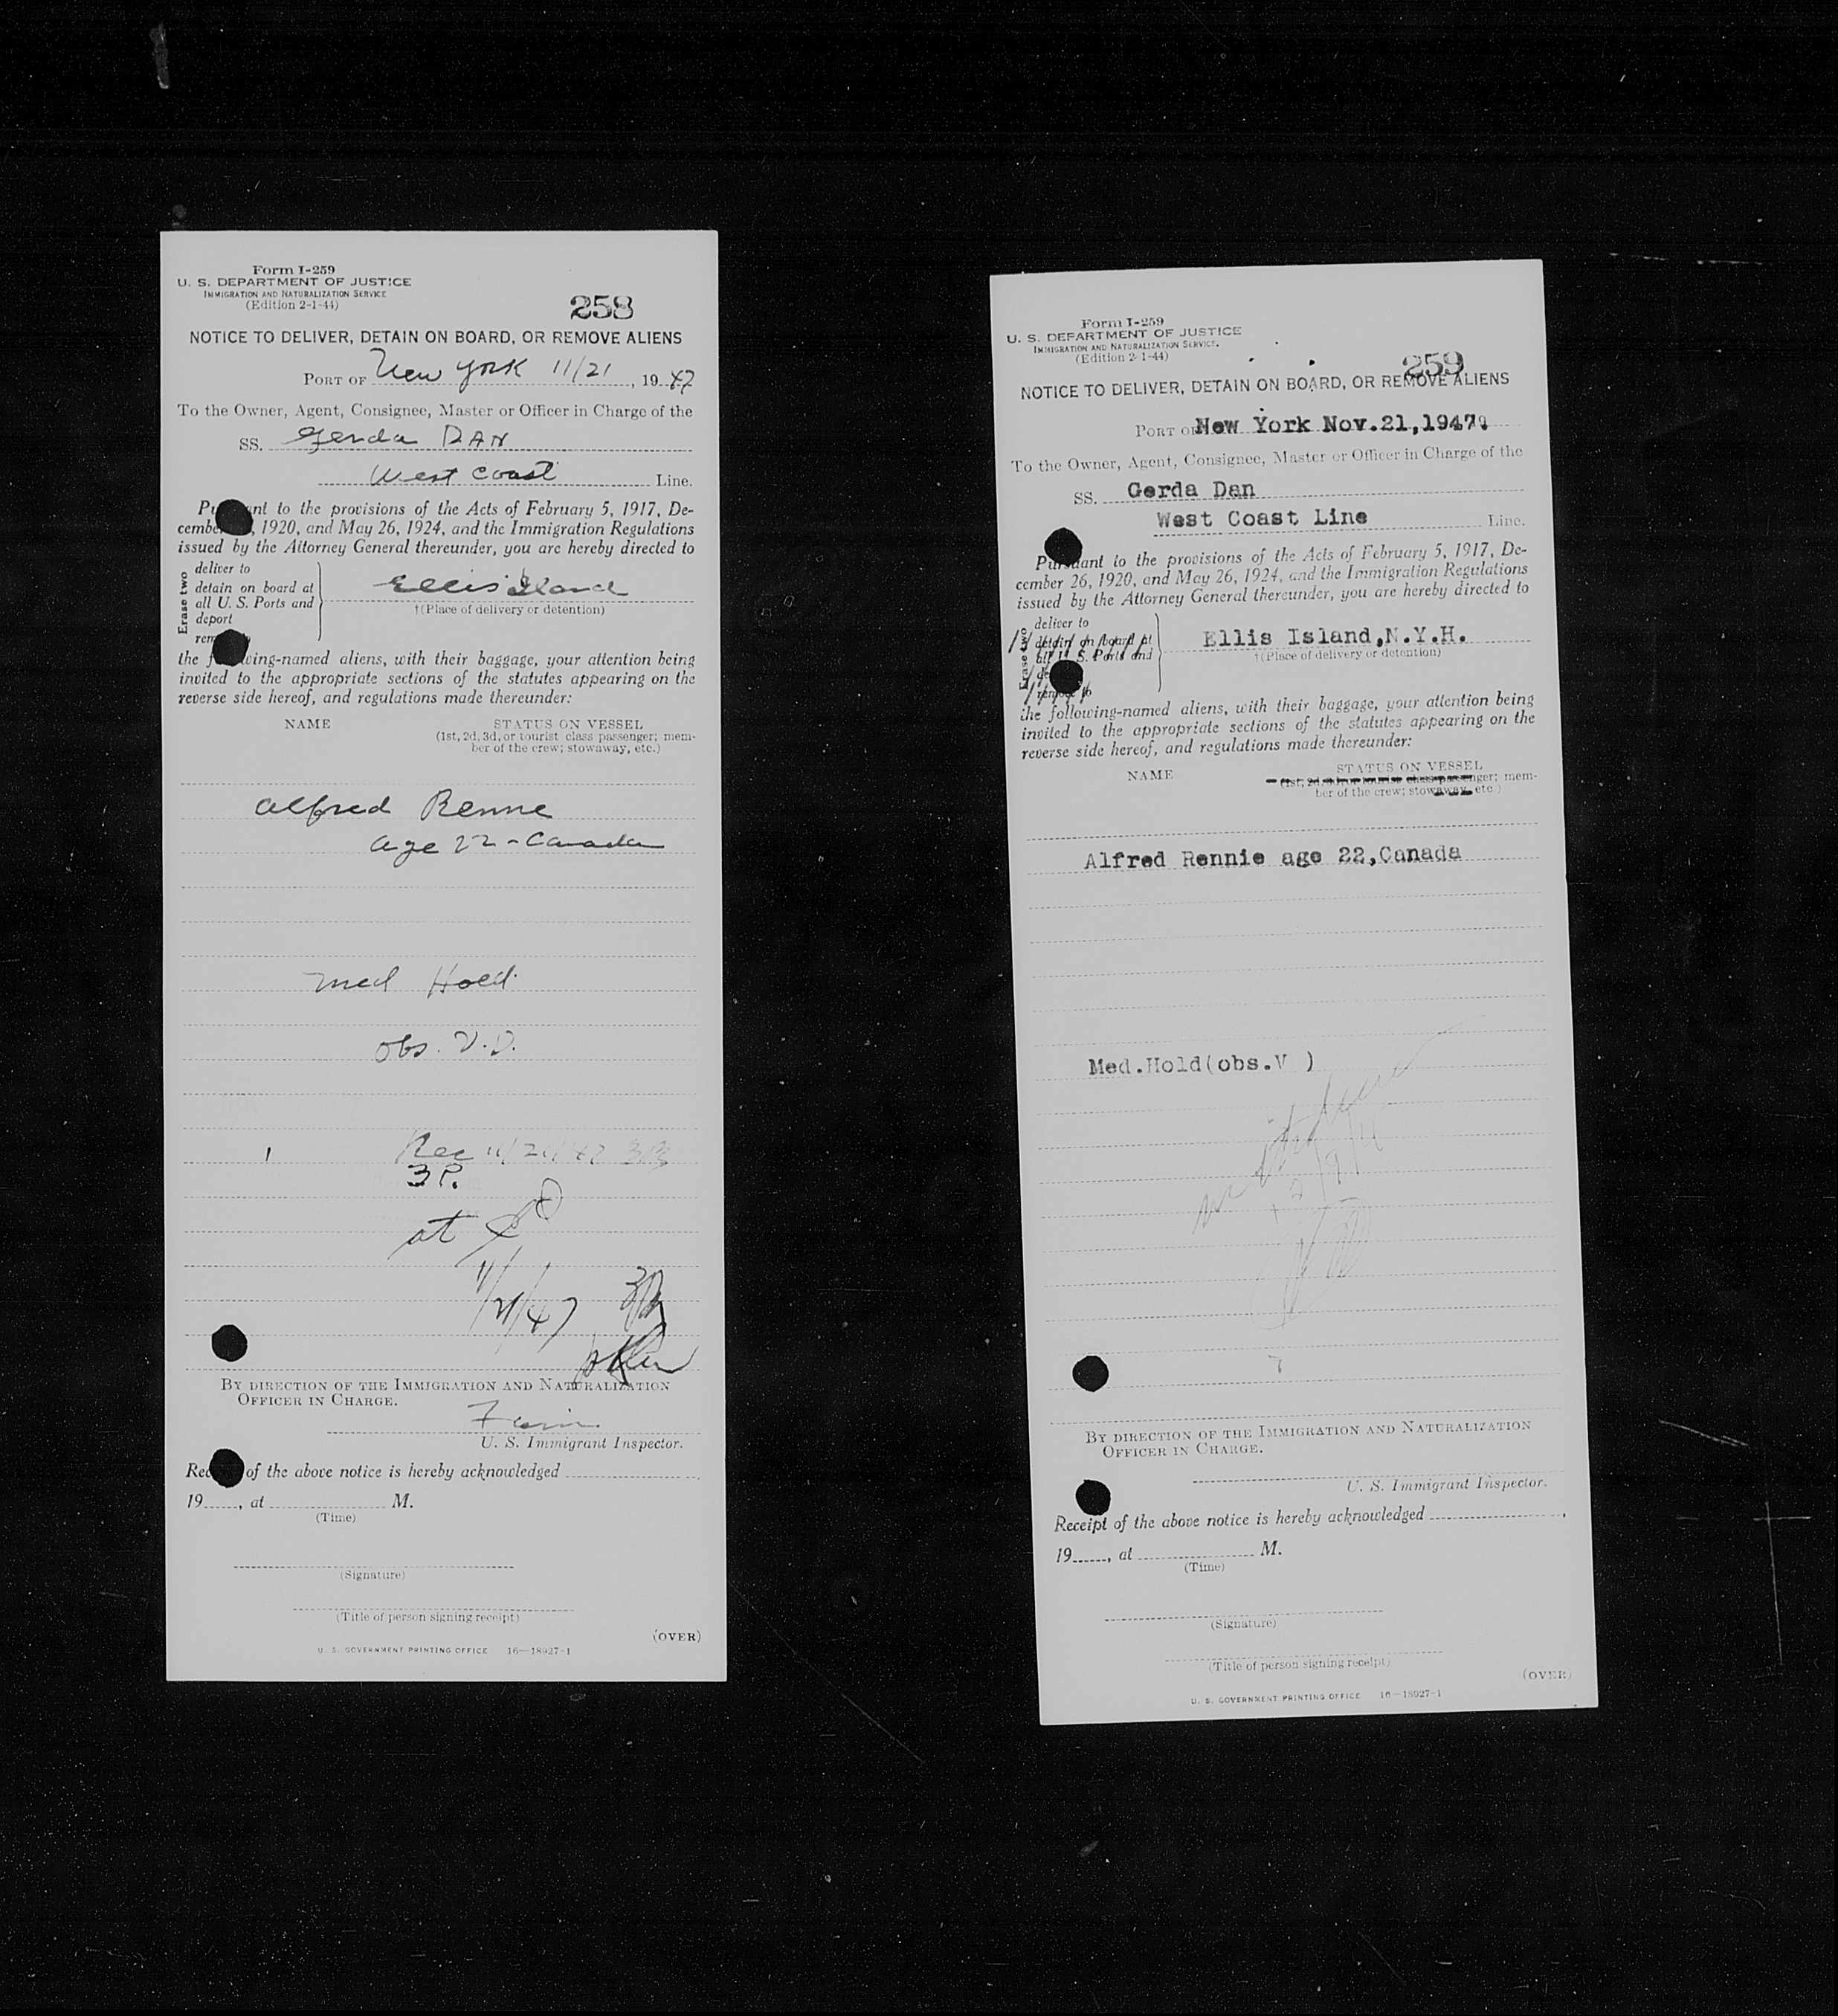 Form I-259
U. S. DEPARTMENT OF JUSTICE
IMMIGRATION AND NATURALIZATION SERVICE
(Edition 2-1-44)
258
NOTICE TO DELIVER, DETAIN ON BOARD, OR REMOVE ALIENS
PORT OF New York 11/21, 1947
To the Owner, Agent, Consignee, Master or Officer in Charge of the
SS. Gerda DAN
West Coast Line.
nt to the provisions of the Acts of February 5, 1917, De-
cembe , 1920, and May 26, 1924, and the Immigration Regulations
issued by the Attorney General thereunder, you are hereby directed to
Erase two
deliver to
detain on board at
all U. S. Ports and
deport
rem
Ellis Island
†(Place of delivery or detention)
the f wing-named aliens, with their baggage, your attention being
invited to the appropriate sections of the statutes appearing on the
reverse side hereof, and regulations made thereunder:
NAME STATUS ON VESSEL
(1st, 2d, 3d, or tourist class passenger; mem-
ber of the crew; stowaway, etc.)
Alfred Renne
age 22 - Canada
Med Hold
obs. V.D.
1 Rec 11/21/47
3 P.
at
11/21/47
BY DIRECTION OF THE IMMIGRATION AND NATURALIZATION
OFFICER IN CHARGE.
U. S. Immigrant Inspector.
Rec of the above notice is hereby acknowledged
19 , at M.
(Time)
(Signature)
(Title of person signing receipt)
(OVER)
U. S. GOVERNMENT PRINTING OFFICE 16—18927-1
Form I-259
U. S. DEPARTMENT OF JUSTICE
IMMIGRATION AND NATURALIZATION SERVICE.
(Edition 2-1-44)
259
NOTICE TO DELIVER, DETAIN ON BOARD, OR REMOVE ALIENS
PORT OF New York Nov.21,1947.
To the Owner, Agent, Consignee, Master or Officer in Charge of the
SS. Gerda Dan
West Coast Line Line.
Pursuant to the provisions of the Acts of February 5, 1917, De-
cember 26, 1920, and May 26, 1924, and the Immigration Regulations
issued by the Attorney General thereunder, you are hereby directed to
Erase two
deliver to
detain on board at
all U. S. Ports and
de
remove to
Ellis Island,N.Y.H.
†(Place of delivery or detention)
the following-named aliens, with their baggage, your attention being
invited to the appropriate sections of the statutes appearing on the
reverse side hereof, and regulations made thereunder:
NAME STATUS ON VESSEL
(1st, 2d, 3d, or tourist class passenger; mem-
ber of the crew; stowaway, etc.)
Alfred Rennie age 22,Canada
Med.Hold(obs.V )
BY DIRECTION OF THE IMMIGRATION AND NATURALIZATION
OFFICER IN CHARGE.
U. S. Immigrant Inspector.
Receipt of the above notice is hereby acknowledged
19 , at M.
(Time)
(Signature)
(Title of person signing receipt)
(OVER)
U. S. GOVERNMENT PRINTING OFFICE 16—18927-1